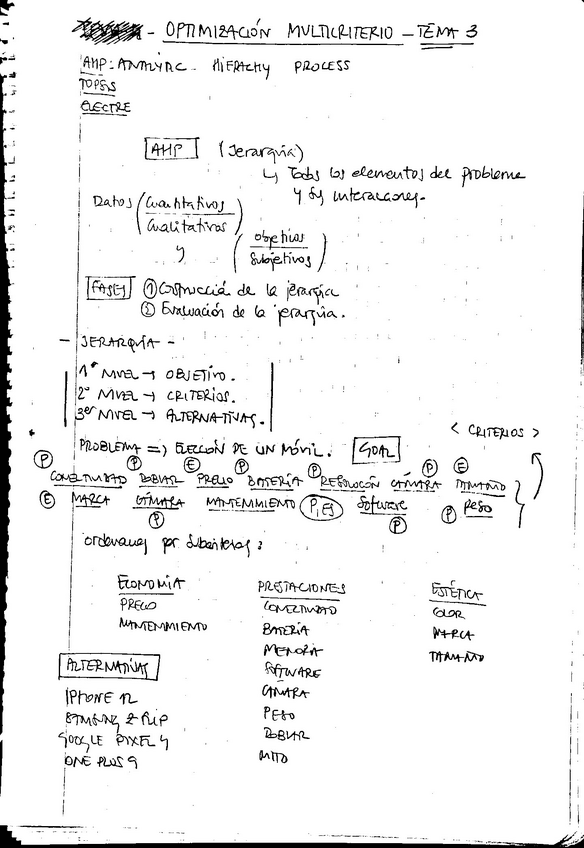 - OPTIMIZACIÓN MULTICRITERIO - TEMA 3
AHP: ANALYTIC HIERACHY PROCESS
TOPSIS
ELECTRE
AHP (Jerarquía)
↳ Todos los elementos del problema
y sus interacciones.
Datos (Cuantitativos
Cualitativos)
y (objetivos
Subjetivos)
FASES ① Construcción de la jerarquía
② Evaluación de la jerarquía.
- JERARQUÍA -
1er NIVEL → OBJETIVO.
2º NIVEL → CRITERIOS.
3er NIVEL → ALTERNATIVAS.
PROBLEMA => ELECCIÓN DE UN MÓVIL. GOAL
< CRITERIOS >
P P E P P P E
CONECTIVIDAD DOBLAR PRECIO BATERÍA RESOLUCIÓN CÁMARA TAMAÑO
E MARCA CÁMARA MANTENIMIENTO P, E Software P PESO
P P
ordenamos por Subcriterios:
ECONOMIA
PRECIO
MANTENIMIENTO
PRESTACIONES
CONECTIVIDAD
BATERÍA
MEMORIA
SOFTWARE
CÁMARA
PESO
DOBLAR
MTTO
ESTÉTICA
COLOR
MARCA
TAMAÑO
ALTERNATIVAS
IPHONE 12
SAMSUNG Z FLIP
GOOGLE PIXEL 4
ONE PLUS 9